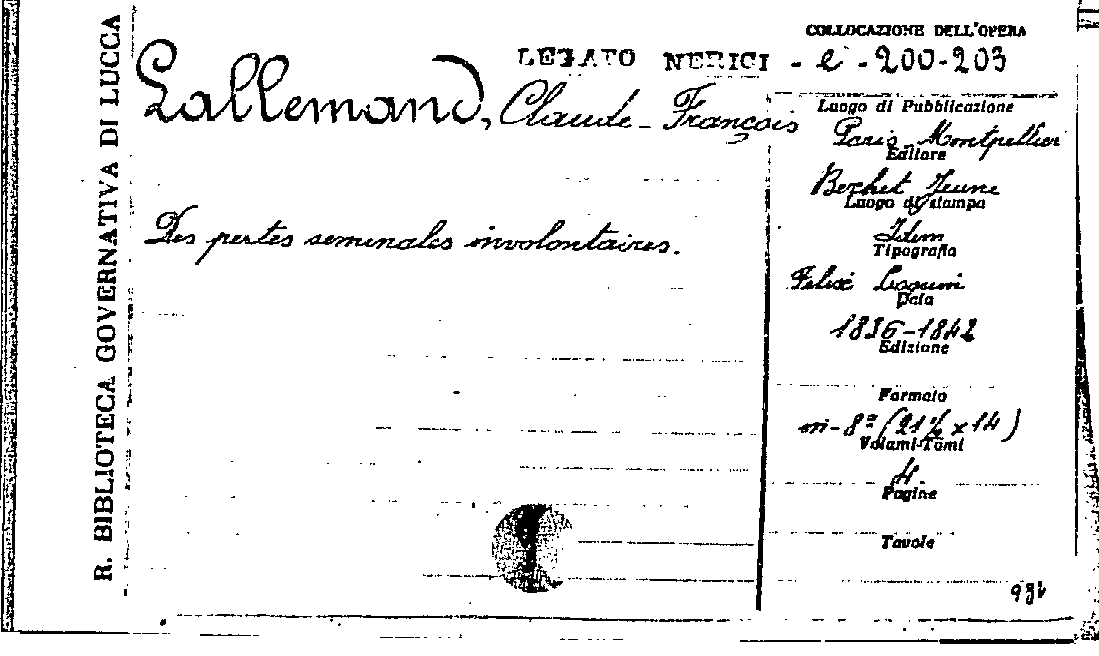 R. BIBLIOTECA GOVERNATIVA DI LUCCA
COLLOCAZIONE DELL'OPERA
LEGATO NERICI - e - 200-203
Lallemand, Claude-François
Des pertes seminales involontaires.
Luogo di Pubblicazione
Paris - Montpellier
Editore
Bechet Jeune
Luogo di stampa
Idem
Tipografia
Felix
Data
1836-1842
Edizione
Formato
in-8º (21½ x 14)
Volumi-Tomi
4
Pagine
Tavole